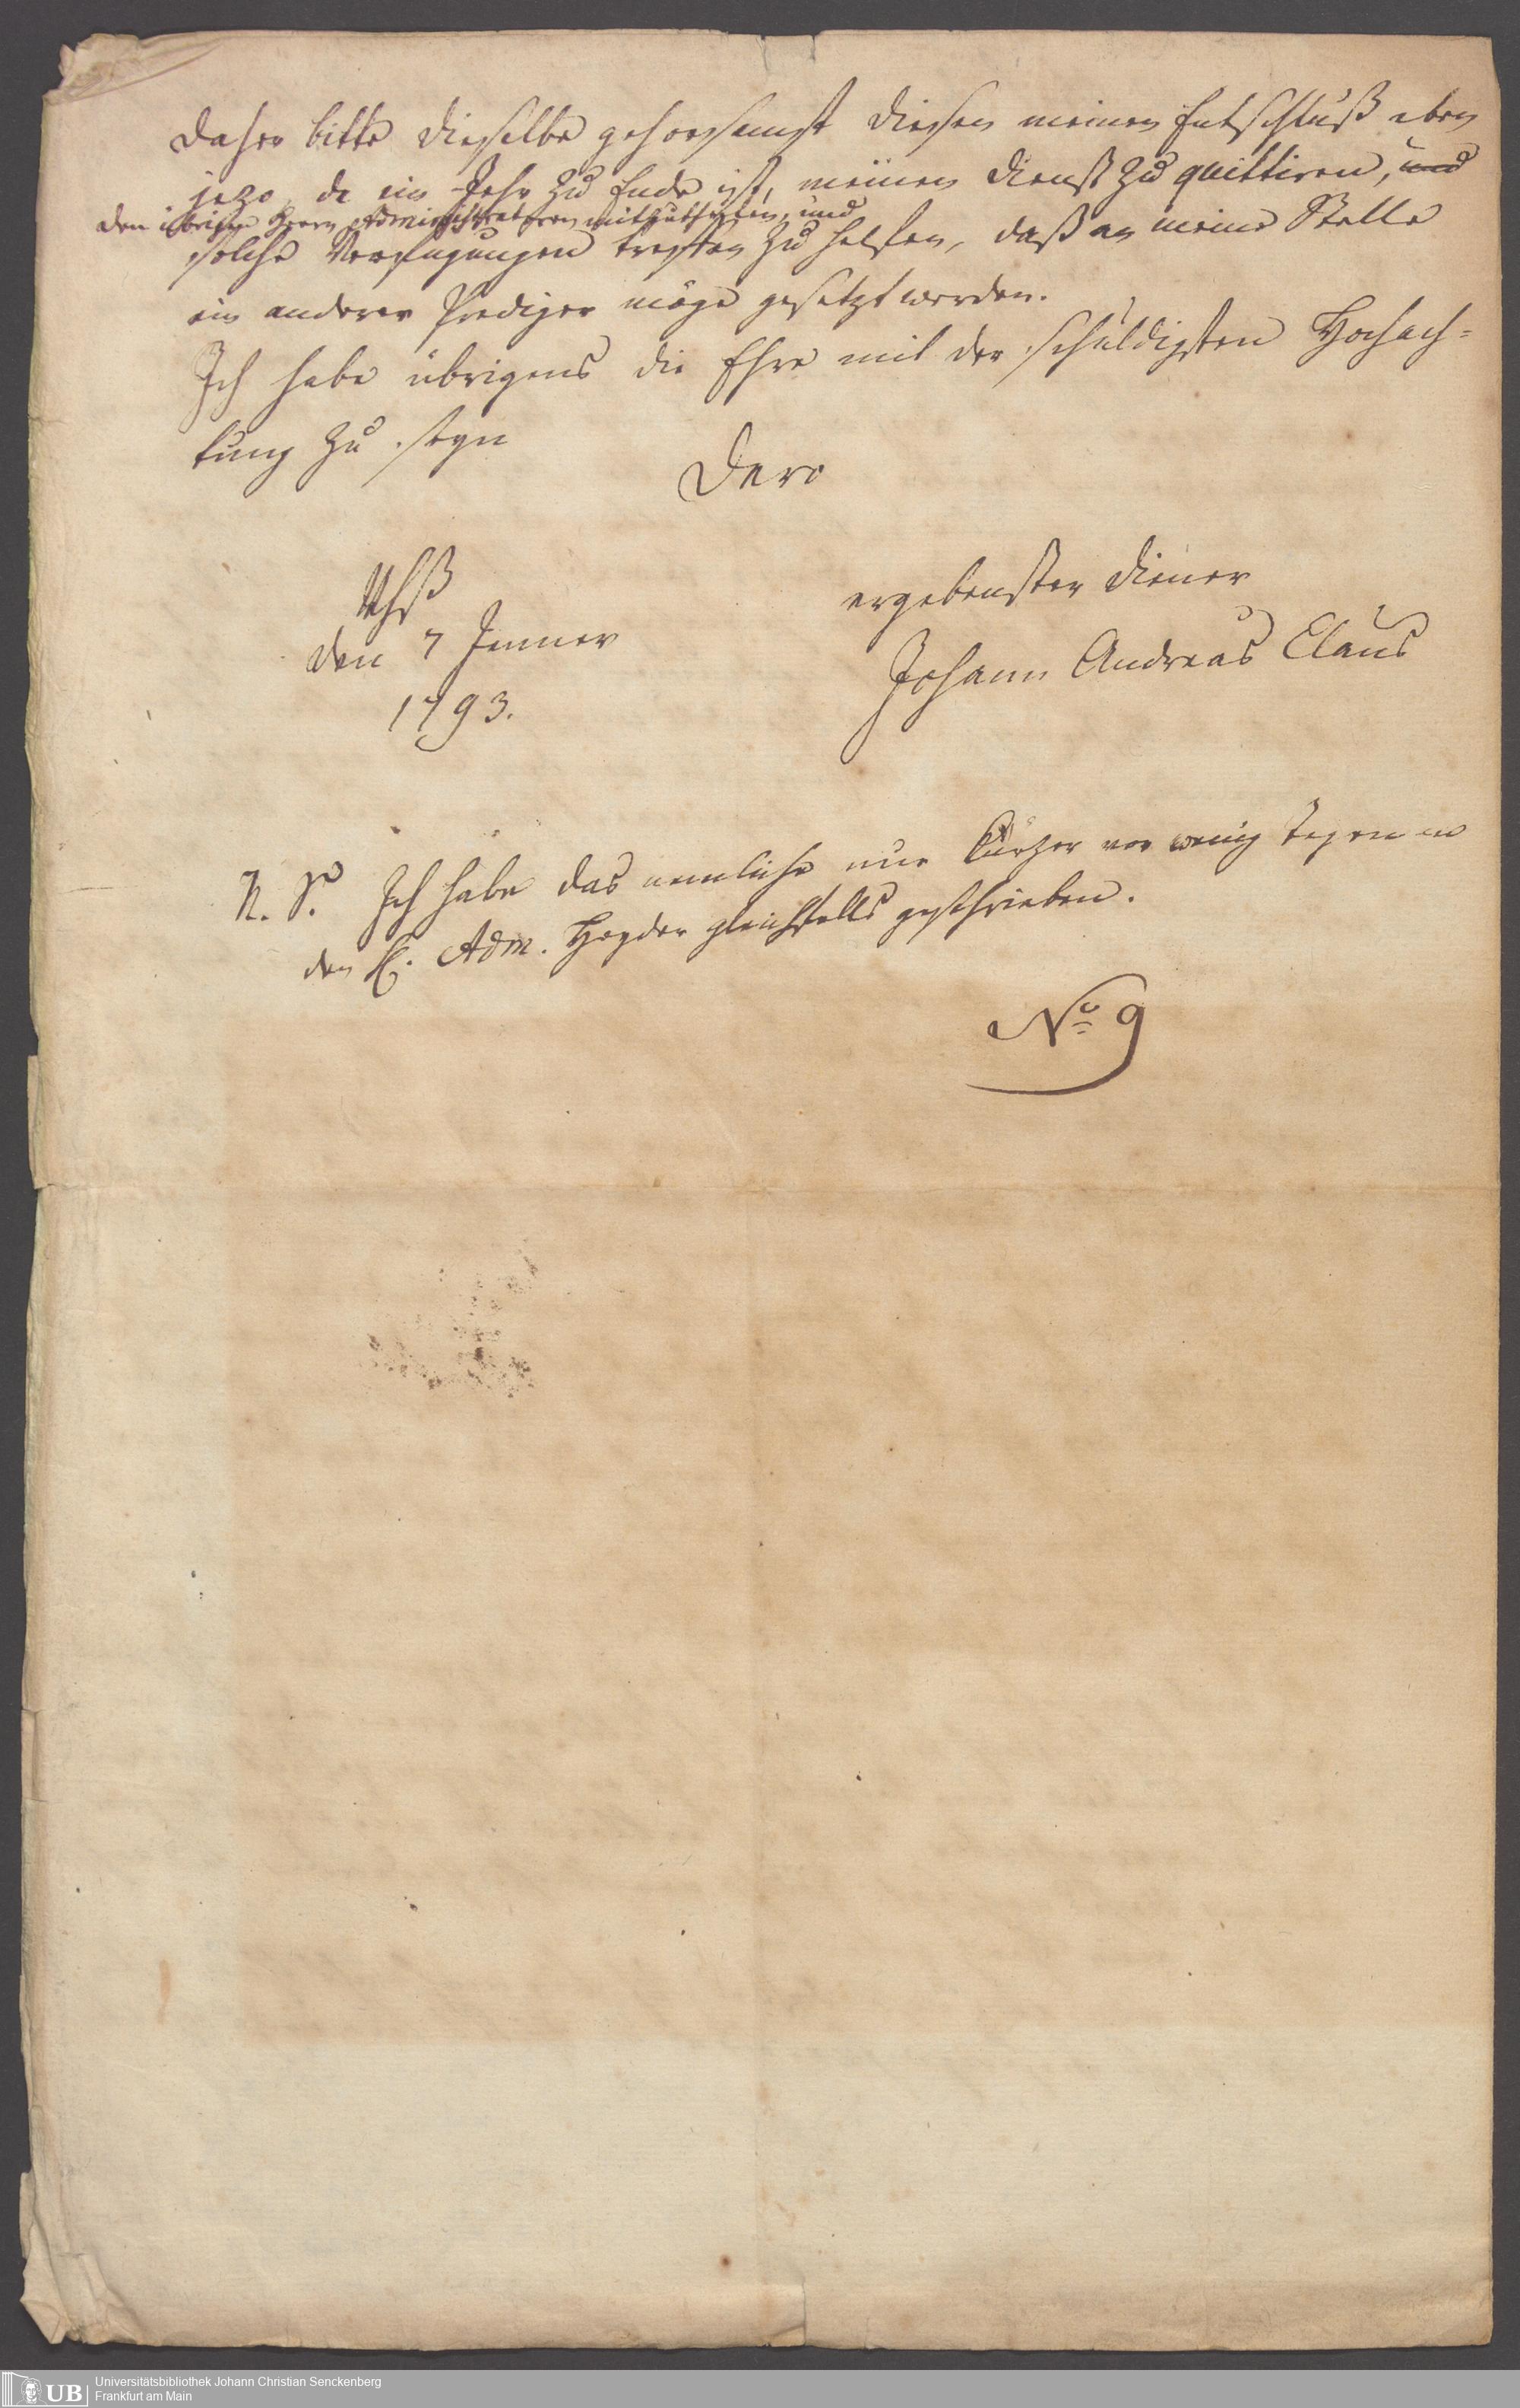 Daher bitte dieselbe gehorsamst diesen meinen Entschluß eben
jezo, da ein Jahr zu Ende ist, meinen Dienst zu quittiren, und
den übrigen Herrn Administratoren mitzutheilen, und
solche Verfügungen treffen zu helfen, daß an meine Stelle
ein anderer Prediger möge gesetzt werden.
Ich habe übrigens die Ehre mit der schuldigsten Hochach=
tung zu seyn
Dero
ergebenster Diener
Johann Andreas Claus
den 7 Jenner
1793.
N. S. Ich habe das nemliche nur kürzer vor wenig Tagen an
den H. Adm. Heyder gleichfalls geschrieben.
No 9
UB Universitätsbibliothek Johann Christian Senckenberg
Frankfurt am Main